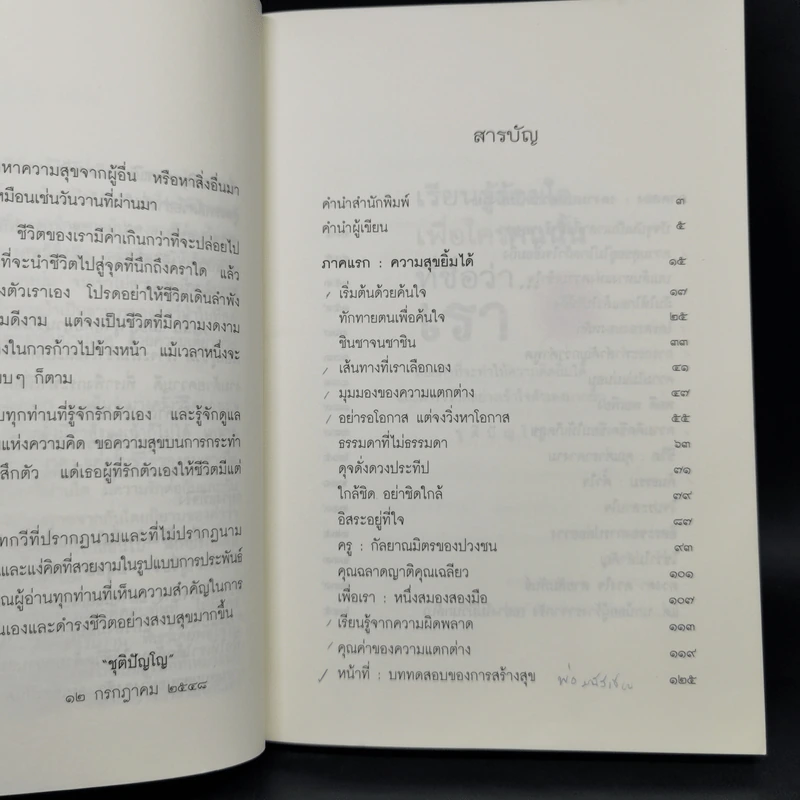 หาความสุขจากผู้อื่น หรือหาสิ่งอื่นมา
หมือนเช่นวันวานที่ผ่านมา
ชีวิตของเรามีค่าเกินกว่าที่จะปล่อยไป
ที่จะนำชีวิตไปสู่จุดที่นึกถึงคราใด แล้ว
งตัวเราเอง โปรดอย่าให้ชีวิตเดินลำพัง
มดีงาม แต่จงเป็นชีวิตที่มีความงดงาม
งในการก้าวไปข้างหน้า แม้เวลาหนึ่งจะ
บบๆ ก็ตาม
บทุกท่านที่รู้จักรักตัวเอง และรู้จักดูแล
แห่งความคิด ขอความสุขบนการกระทำ
สึกตัว แด่เธอผู้ที่รักตัวเองให้ชีวิตมีแต่
ทกวีที่ปรากฏนามและที่ไม่ปรากฏนาม
และแง่คิดที่สวยงามในรูปแบบการประพันธ์
ณผู้อ่านทุกท่านที่เห็นความสำคัญในการ
นเองและดำรงชีวิตอย่างสงบสุขมากขึ้น
"ชุติปัญโญ"
๑๒ กรกฎาคม ๒๕๔๘
สารบัญ
คำนำสำนักพิมพ์ ๓
คำนำผู้เขียน ๕
ภาคแรก : ความสุขยิ้มได้ ๑๕
เริ่มต้นด้วยค้นใจ ๑๗
ทักทายตนเพื่อค้นใจ ๒๕
ชินชาจนชาชิน ๓๓
เส้นทางที่เราเลือกเอง ๔๑
มุมมองของความแตกต่าง ๔๗
อย่ารอโอกาส แต่จงวิ่งหาโอกาส ๕๕
ธรรมดาที่ไม่ธรรมดา ๖๓
ดุจดั่งดวงประทีป ๗๑
ใกล้ชิด อย่าชิดใกล้ ๗๙
อิสระอยู่ที่ใจ ๘๗
ครู : กัลยาณมิตรของปวงชน ๙๓
คุณฉลาดญาติคุณเฉลียว ๑๐๑
เพื่อเรา : หนึ่งสมองสองมือ ๑๐๗
เรียนรู้จากความผิดพลาด ๑๑๓
คุณค่าของความแตกต่าง ๑๑๙
หน้าที่ : บททดสอบของการสร้างสุข ๑๒๕